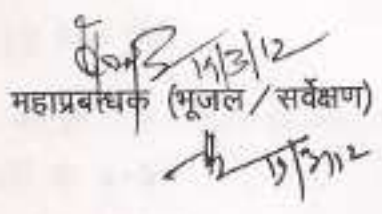 19/3/12
महाप्रबन्धक (भूजल / सर्वेक्षण)
19/3/12